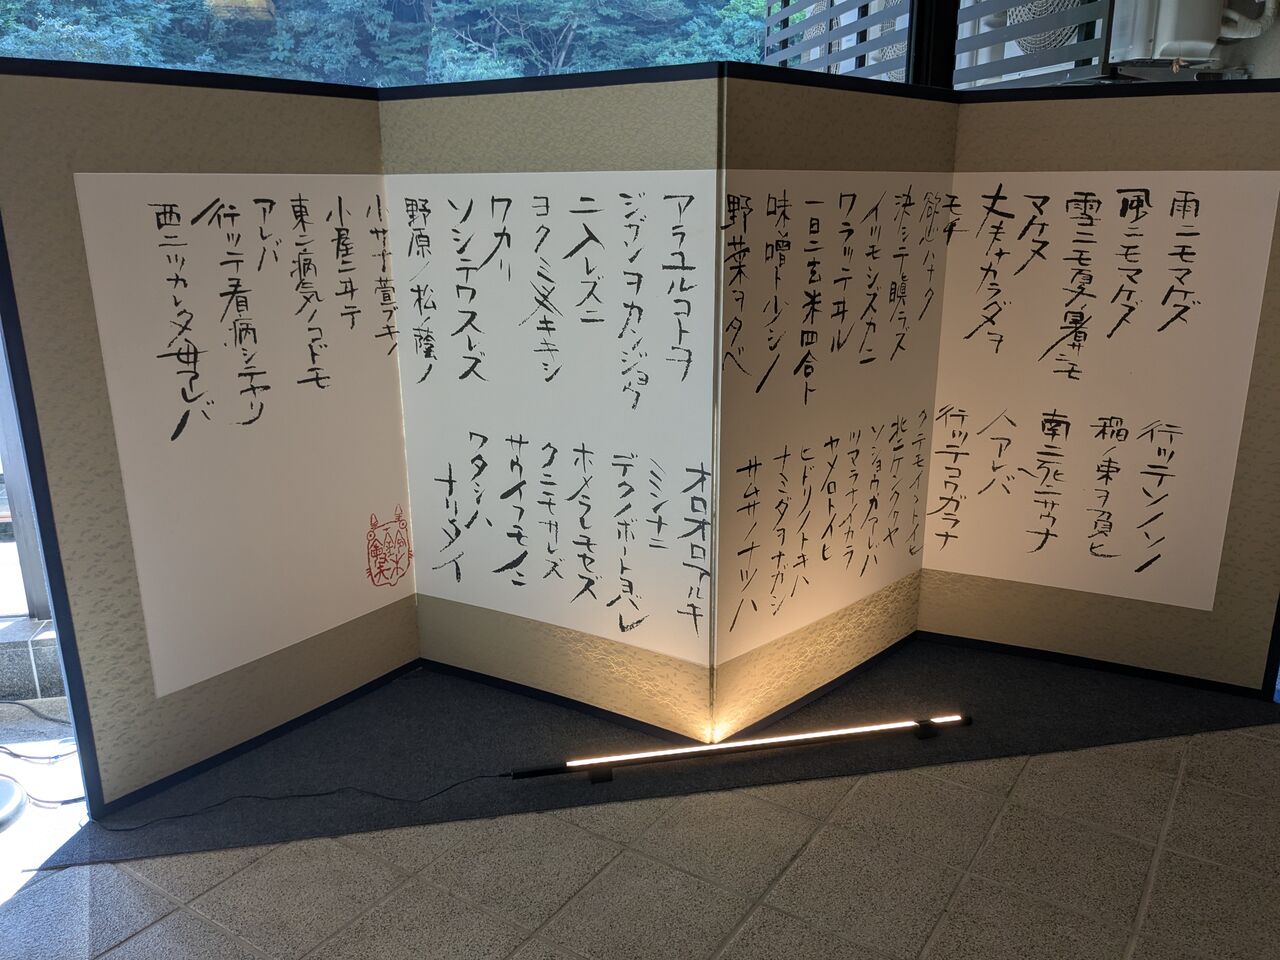 雨ニモマケズ
風ニモマケズ
雪ニモ夏ノ暑サニモ
マケヌ
丈夫ナカラダヲ
モチ
欲ハナク
決シテ瞋ラズ
イツモシズカニ
ワラッテヰル
一日ニ玄米四合ト
味噌ト少シノ
野菜ヲタベ
アラユルコトヲ
ジブンヲカンジョウ
ニ入レズニ
ヨクミキキシ
ワカリ
ソシテワスレズ
野原ノ松ノ蔭ノ
小サナ萱ブキノ
小屋ニヰテ
東ニ病気ノコドモ
アレバ
行ッテ看病シテヤリ
西ニツカレタ母アレバ
行ッテソノ
稲ノ束ヲ負ヒ
南ニ死ニサウナ
人アレバ
行ッテコワガラナ
クテモイヽトイヒ
北ニケンクヮヤ
ソショウガアレバ
ツマラナイカラ
ヤメロトイヒ
ヒドリノトキハ
ナミダヲナガシ
サムサノナツハ
オロオロアルキ
ミンナニ
デクノボートヨバレ
ホメラレモセズ
クニモサレズ
サウイフモノニ
ワタシハ
ナリタイ